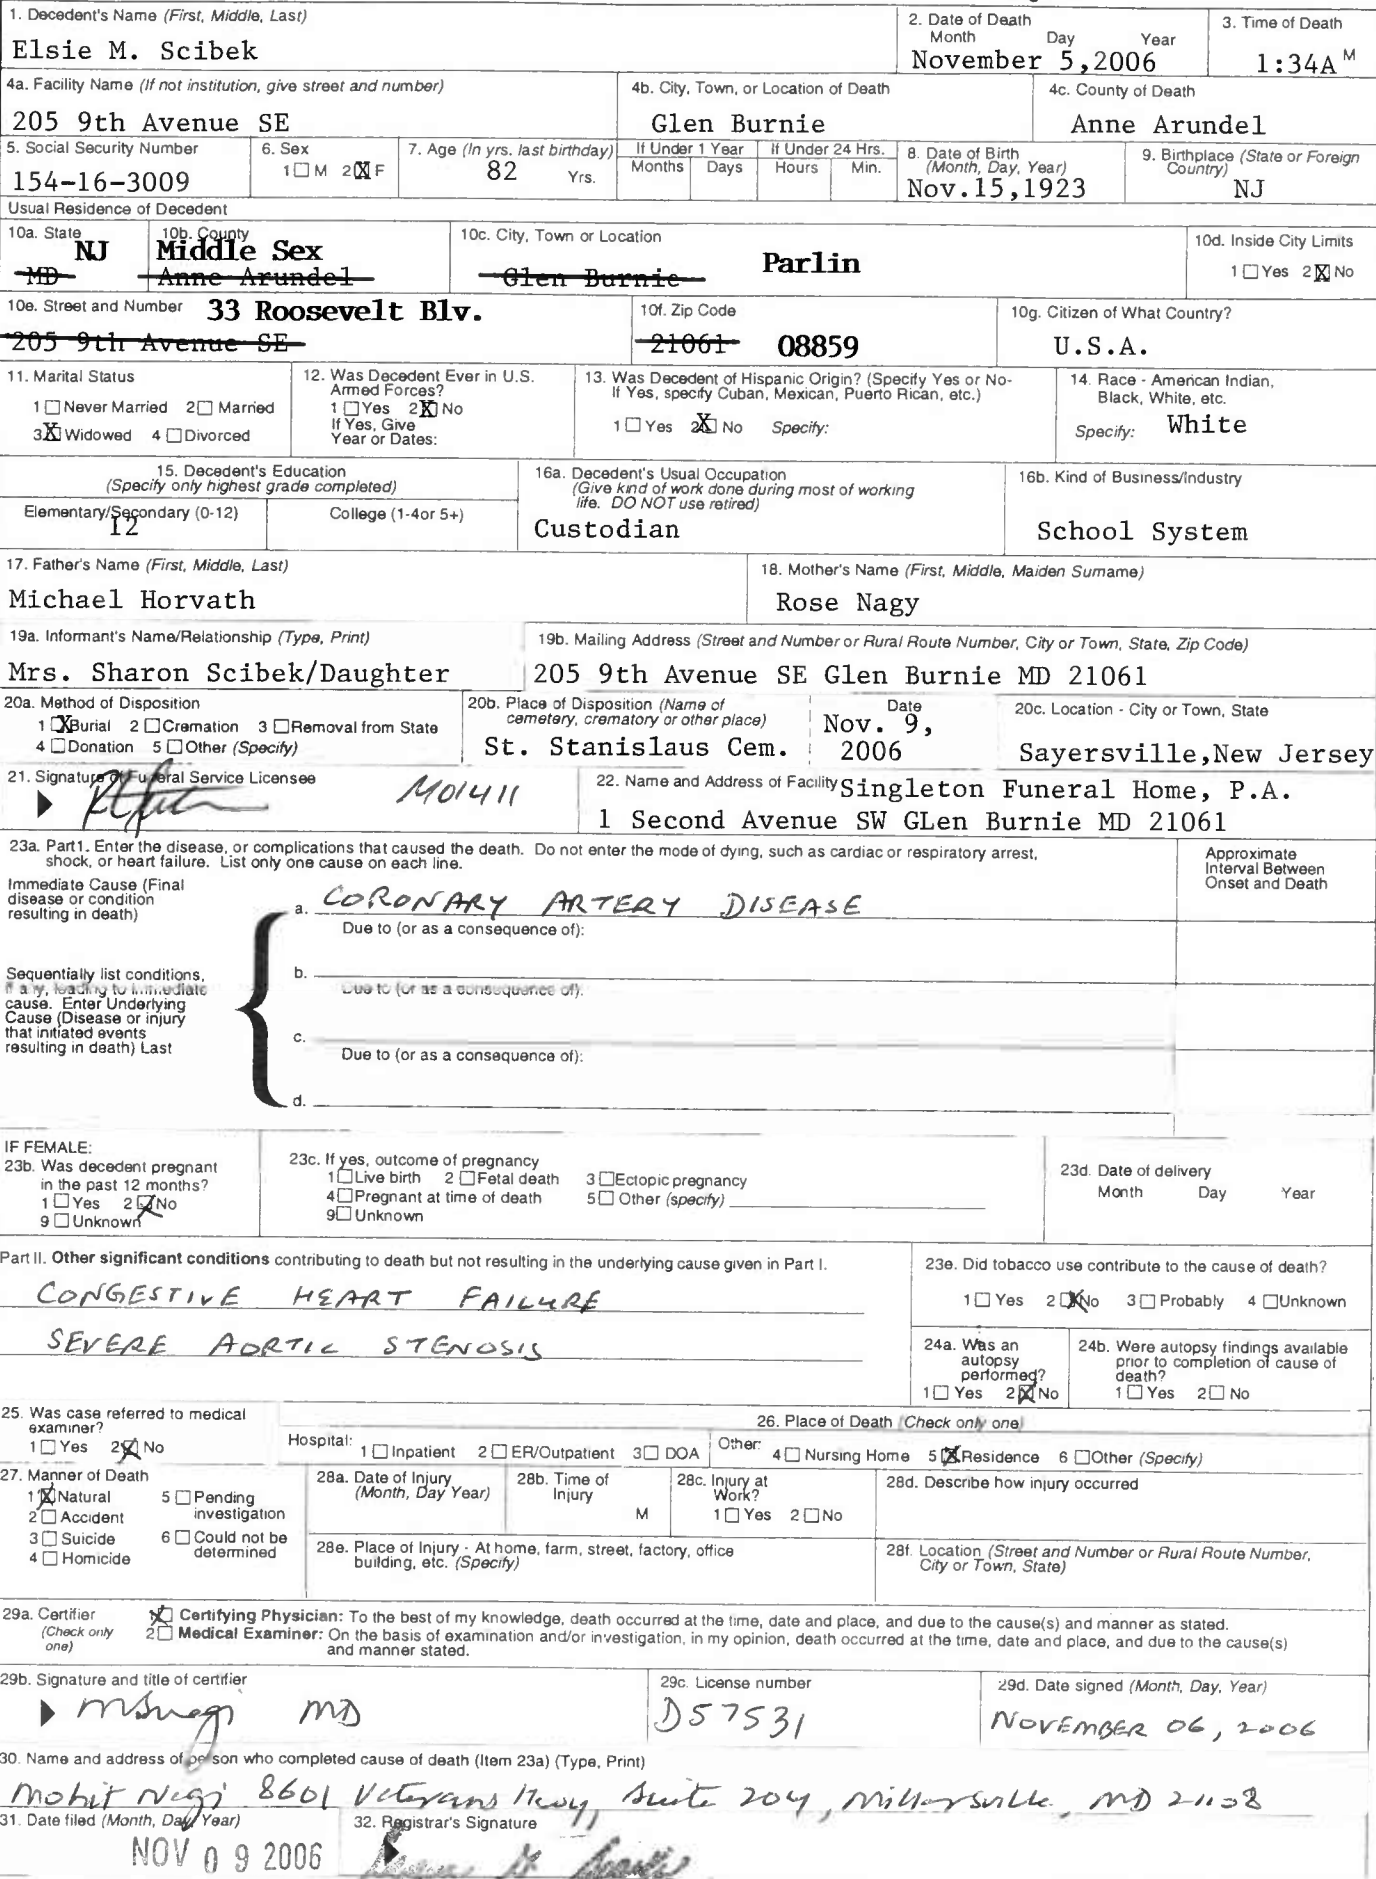 1. Decedent's Name (First, Middle, Last)
Elsie M. Scibek
2. Date of Death
Month Day Year
November 5,2006
3. Time of Death
1:34A M
4a. Facility Name (If not institution, give street and number)
205 9th Avenue SE
4b. City, Town, or Location of Death
Glen Burnie
4c. County of Death
Anne Arundel
5. Social Security Number
154-16-3009
6. Sex
1 M 2 X F
7. Age (In yrs. last birthday)
82 Yrs.
If Under 1 Year
Months Days
If Under 24 Hrs.
Hours Min.
8. Date of Birth
(Month, Day, Year)
Nov.15,1923
9. Birthplace (State or Foreign
Country)
NJ
Usual Residence of Decedent
10a. State
NJ
MD
10b. County
Middle Sex
Anne Arundel
10c. City, Town or Location
Glen Burnie Parlin
10d. Inside City Limits
1 Yes 2 X No
10e. Street and Number 33 Roosevelt Blv.
205 9th Avenue SE
10f. Zip Code
21061 08859
10g. Citizen of What Country?
U.S.A.
11. Marital Status
1 Never Married 2 Married
3 X Widowed 4 Divorced
12. Was Decedent Ever in U.S.
Armed Forces?
1 Yes 2 X No
If Yes, Give
Year or Dates:
13. Was Decedent of Hispanic Origin? (Specify Yes or No-
If Yes, specify Cuban, Mexican, Puerto Rican, etc.)
1 Yes 2 X No Specify:
14. Race - American Indian,
Black, White, etc.
Specify: White
15. Decedent's Education
(Specify only highest grade completed)
Elementary/Secondary (0-12)
12
College (1-4or 5+)
16a. Decedent's Usual Occupation
(Give kind of work done during most of working
life. DO NOT use retired)
Custodian
16b. Kind of Business/Industry
School System
17. Father's Name (First, Middle, Last)
Michael Horvath
18. Mother's Name (First, Middle, Maiden Surname)
Rose Nagy
19a. Informant's Name/Relationship (Type, Print)
Mrs. Sharon Scibek/Daughter
19b. Mailing Address (Street and Number or Rural Route Number, City or Town, State, Zip Code)
205 9th Avenue SE Glen Burnie MD 21061
20a. Method of Disposition
1 X Burial 2 Cremation 3 Removal from State
4 Donation 5 Other (Specify)
20b. Place of Disposition (Name of
cemetery, crematory or other place)
St. Stanislaus Cem.
Date
Nov. 9,
2006
20c. Location - City or Town, State
Sayersville,New Jersey
21. Signature of Funeral Service Licensee
M01411
22. Name and Address of Facility Singleton Funeral Home, P.A.
1 Second Avenue SW GLen Burnie MD 21061
23a. Part1. Enter the disease, or complications that caused the death. Do not enter the mode of dying, such as cardiac or respiratory arrest,
shock, or heart failure. List only one cause on each line.
Approximate
Interval Between
Onset and Death
Immediate Cause (Final
disease or condition
resulting in death)
a. CORONARY ARTERY DISEASE
Due to (or as a consequence of):
Sequentially list conditions,
if any, leading to immediate
cause. Enter Underlying
Cause (Disease or injury
that initiated events
resulting in death) Last
b.
Due to (or as a consequence of):
c.
Due to (or as a consequence of):
d.
IF FEMALE:
23b. Was decedent pregnant
in the past 12 months?
1 Yes 2 X No
9 Unknown
23c. If yes, outcome of pregnancy
1 Live birth 2 Fetal death 3 Ectopic pregnancy
4 Pregnant at time of death 5 Other (specify)
9 Unknown
23d. Date of delivery
Month Day Year
Part II. Other significant conditions contributing to death but not resulting in the underlying cause given in Part I.
CONGESTIVE HEART FAILURE
SEVERE AORTIC STENOSIS
23e. Did tobacco use contribute to the cause of death?
1 Yes 2 X No 3 Probably 4 Unknown
24a. Was an
autopsy
performed?
1 Yes 2 X No
24b. Were autopsy findings available
prior to completion of cause of
death?
1 Yes 2 No
25. Was case referred to medical
examiner?
1 Yes 2 X No
26. Place of Death (Check only one)
Hospital: 1 Inpatient 2 ER/Outpatient 3 DOA Other: 4 Nursing Home 5 X Residence 6 Other (Specify)
27. Manner of Death
1 X Natural 5 Pending
investigation
2 Accident
3 Suicide 6 Could not be
determined
4 Homicide
28a. Date of Injury
(Month, Day Year)
28b. Time of
Injury
M
28c. Injury at
Work?
1 Yes 2 No
28d. Describe how injury occurred
28e. Place of Injury - At home, farm, street, factory, office
building, etc. (Specify)
28f. Location (Street and Number or Rural Route Number,
City or Town, State)
29a. Certifier
(Check only
one)
X Certifying Physician: To the best of my knowledge, death occurred at the time, date and place, and due to the cause(s) and manner as stated.
2 Medical Examiner: On the basis of examination and/or investigation, in my opinion, death occurred at the time, date and place, and due to the cause(s)
and manner stated.
29b. Signature and title of certifier
MSnegi MD
29c. License number
D57531
29d. Date signed (Month, Day, Year)
NOVEMBER 06, 2006
30. Name and address of person who completed cause of death (Item 23a) (Type, Print)
Mohit Negi 8601 Veterans Hwy, Suite 204, Millersville, MD 21108
31. Date filed (Month, Day, Year)
NOV 09 2006
32. Registrar's Signature